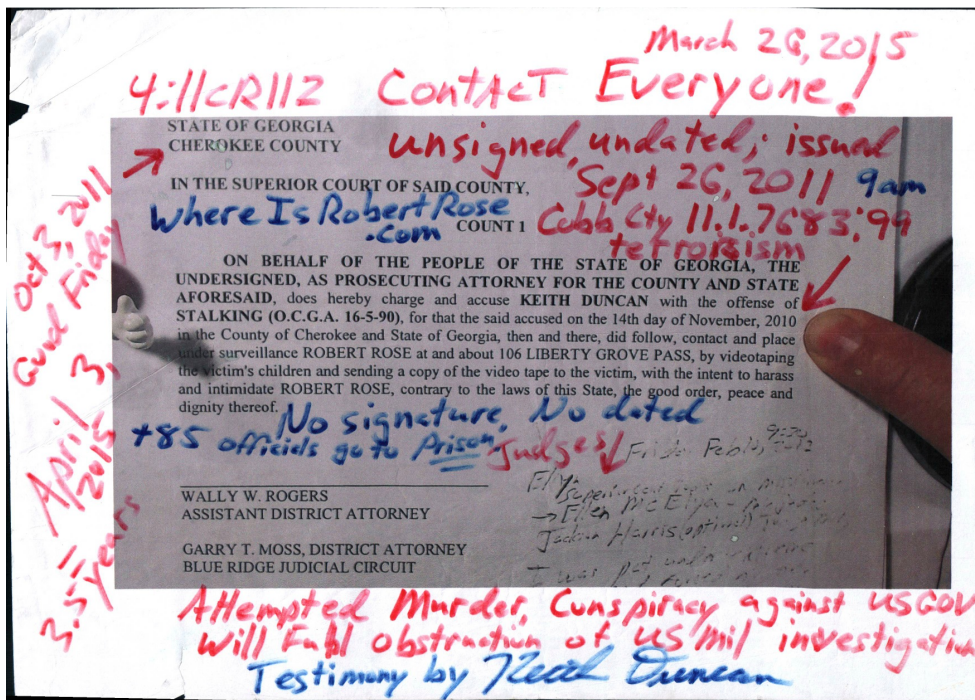 March 26, 2015
4:11CR112 Contact Everyone!
STATE OF GEORGIA
CHEROKEE COUNTY
unsigned, undated; issued
Sept 26, 2011 9am
IN THE SUPERIOR COURT OF SAID COUNTY,
Where Is Robert Rose
.com
COUNT 1
Cobb Cty 11.1.7683.99
terroisism
ON BEHALF OF THE PEOPLE OF THE STATE OF GEORGIA, THE
UNDERSIGNED, AS PROSECUTING ATTORNEY FOR THE COUNTY AND STATE
AFORESAID, does hereby charge and accuse KEITH DUNCAN with the offense of
STALKING (O.C.G.A. 16-5-90), for that the said accused on the 14th day of November, 2010
in the County of Cherokee and State of Georgia, then and there, did follow, contact and place
under surveillance ROBERT ROSE at and about 106 LIBERTY GROVE PASS, by videotaping
the victim's children and sending a copy of the video tape to the victim, with the intent to harass
and intimidate ROBERT ROSE, contrary to the laws of this State, the good order, peace and
dignity thereof.
No signature, No dated
+85 officials go to Prison
Judges
Friday Feb 2012
9:30
Superior Court
Ellen McElyea
Jackson Harris (optional)
I was put under
WALLY W. ROGERS
ASSISTANT DISTRICT ATTORNEY
GARRY T. MOSS, DISTRICT ATTORNEY
BLUE RIDGE JUDICIAL CIRCUIT
Oct 3, 2011
Good Friday
April 3,
2015
3.5 years
Attempted Murder, Conspiracy against US GOV
Will Full obstruction of US Mil investigation
Testimony by Keith Duncan